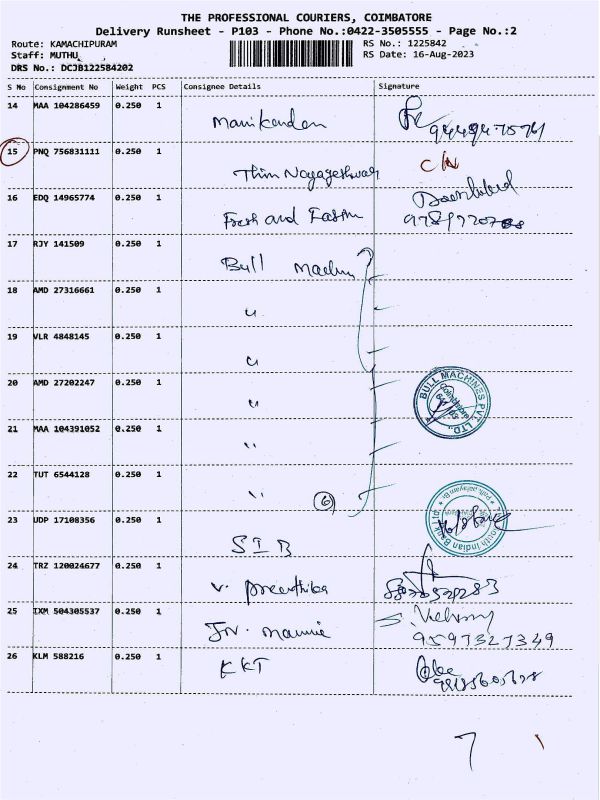 THE PROFESSIONAL COURIERS, COIMBATORE
Delivery Runsheet - P103 - Phone No.:0422-3505555 - Page No.:2
Route: KAMACHIPURAM
Staff: MUTHU
DRS No.: DCJB122584202
RS No.: 1225842
RS Date: 16-Aug-2023
S No Consignment No Weight PCS Consignee Details Signature
14 MAA 104286459 0.250 1 Manikandan
15 PNQ 756831111 0.250 1 C/N
16 EDQ 14965774 0.250 1 Fresh and
17 RJY 141509 0.250 1 Bull
18 AMD 27316661 0.250 1 "
19 VLR 4848145 0.250 1 "
20 AMD 27202247 0.250 1 "
BULL MACHINES PVT. LTD.,
Coimbatore
21 MAA 104391052 0.250 1 "
22 TUT 6544128 0.250 1 " 6
23 UDP 17108356 0.250 1 SIB
South Indian Bank
24 TRZ 120024677 0.250 1 V. Preethika
25 IXM 504305537 0.250 1 9597327349
26 KLM 588216 0.250 1 KKT
7